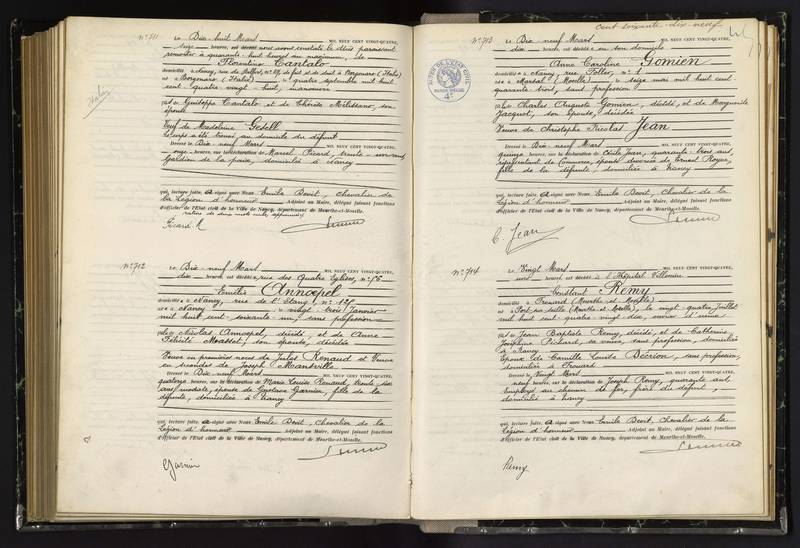 N°711
Le Dix-huit Mars MIL NEUF CENT VINGT-QUATRE,
seize heures, est décédé
remonter à quarante-huit heures au maximum, de
Florentino Cantalo
domicilié à Nancy, rue de Belfort, n°
né à (Italie) quatre septembre mil huit
cent quatre vingt huit,
fils de Guiseppe Cantalo et de Thérèse son
épouse
Veuf de Madeleine Gesell
le corps a été trouvé au domicile du défunt
Dressé le Dix-neuf Mars MIL NEUF CENT VINGT-QUATRE,
onze heures, sur la déclaration de Marcel Picard, trente
Gardien de la paix, domicilié à Nancy
qui, lecture faite, a signé avec Nous Emile Bovit, Chevalier de
la Légion d'honneur Adjoint au Maire, délégué faisant fonctions
d'Officier de l'Etat civil de la Ville de Nancy, département de Meurthe-et-Moselle.
Picard M
N°712
Le Dix-neuf Mars MIL NEUF CENT VINGT-QUATRE,
dix heures, est décédée, rue des Quatre Eglises, n°
Emélie Annoepel
domiciliée à Nancy, rue de l'Etang, n°
née à Nancy, le vingt-trois Janvier
mil huit cent soixante-un, sans profession
fille de Nicolas Annoepel, décédé, et de Anne
Félicité son épouse, décédée
Veuve en premières noces de Jules Renaud et Veuve
en secondes de Joseph Mantville
Dressé le Dix-neuf Mars MIL NEUF CENT VINGT-QUATRE,
quatorze heures, sur la déclaration de Marie Louise Renaud, trente six
ans, modiste, épouse de Gustave Garnier, fille de la
défunte, domiciliée à Nancy
qui, lecture faite, a signé avec Nous Emile Bovit, Chevalier de la
Légion d'honneur Adjoint au Maire, délégué faisant fonctions
d'Officier de l'Etat civil de la Ville de Nancy, département de Meurthe-et-Moselle.
Garnier
Cent soixante-dix-neuf
N°713
Le Dix-neuf Mars MIL NEUF CENT VINGT-QUATRE,
dix heures, est décédée en son domicile
Anne Caroline Gomien
domiciliée à Nancy, rue n° 1
née à Marsal (Moselle) le seize mai mil huit cent
quarante trois, sans profession
fille de Charles Auguste Gomien, décédé, et de Marguerite
Jacquot, son épouse, décédée
Veuve de Christophe Nicolas Jean
Dressé le Dix-neuf Mars MIL NEUF CENT VINGT-QUATRE,
quinze heures, sur la déclaration de Cécile Jean, quarante-trois ans,
représentant de Commerce, épouse divorcée de Ernest Royer,
fille de la défunte, domiciliée à Nancy
qui, lecture faite, a signé avec Nous Emile Bovit, Chevalier de la
Légion d'honneur Adjoint au Maire, délégué faisant fonctions
d'Officier de l'Etat civil de la Ville de Nancy, département de Meurthe-et-Moselle.
C. Jean
N°714
Le Vingt Mars MIL NEUF CENT VINGT-QUATRE,
une heure, est décédé à l'Hôpital Villemin
Constant Remy
domicilié à Frouard (Meurthe et Moselle)
né à (Meurthe et Moselle), le vingt-quatre Juillet
mil huit cent quatre-vingt-dix, ouvrier d'usine
fils de Jean Baptiste Remy, décédé, et de Catherine
Joséphine Pichard, sa veuve, sans profession, domiciliée
à Nancy
Epoux de Camille Louise Bécrion, sans profession,
domiciliée à Frouard
Dressé le Vingt Mars MIL NEUF CENT VINGT-QUATRE,
neuf heures, sur la déclaration de Joseph Remy, quarante ans,
employé au chemin de fer, frère du défunt,
domicilié à Nancy
qui, lecture faite, a signé avec Nous Emile Bovit, Chevalier de la
Légion d'honneur Adjoint au Maire, délégué faisant fonctions
d'Officier de l'Etat civil de la Ville de Nancy, département de Meurthe-et-Moselle.
Remy